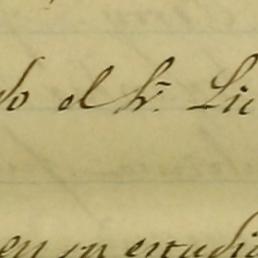 do el Sr. Lic
en su estudio